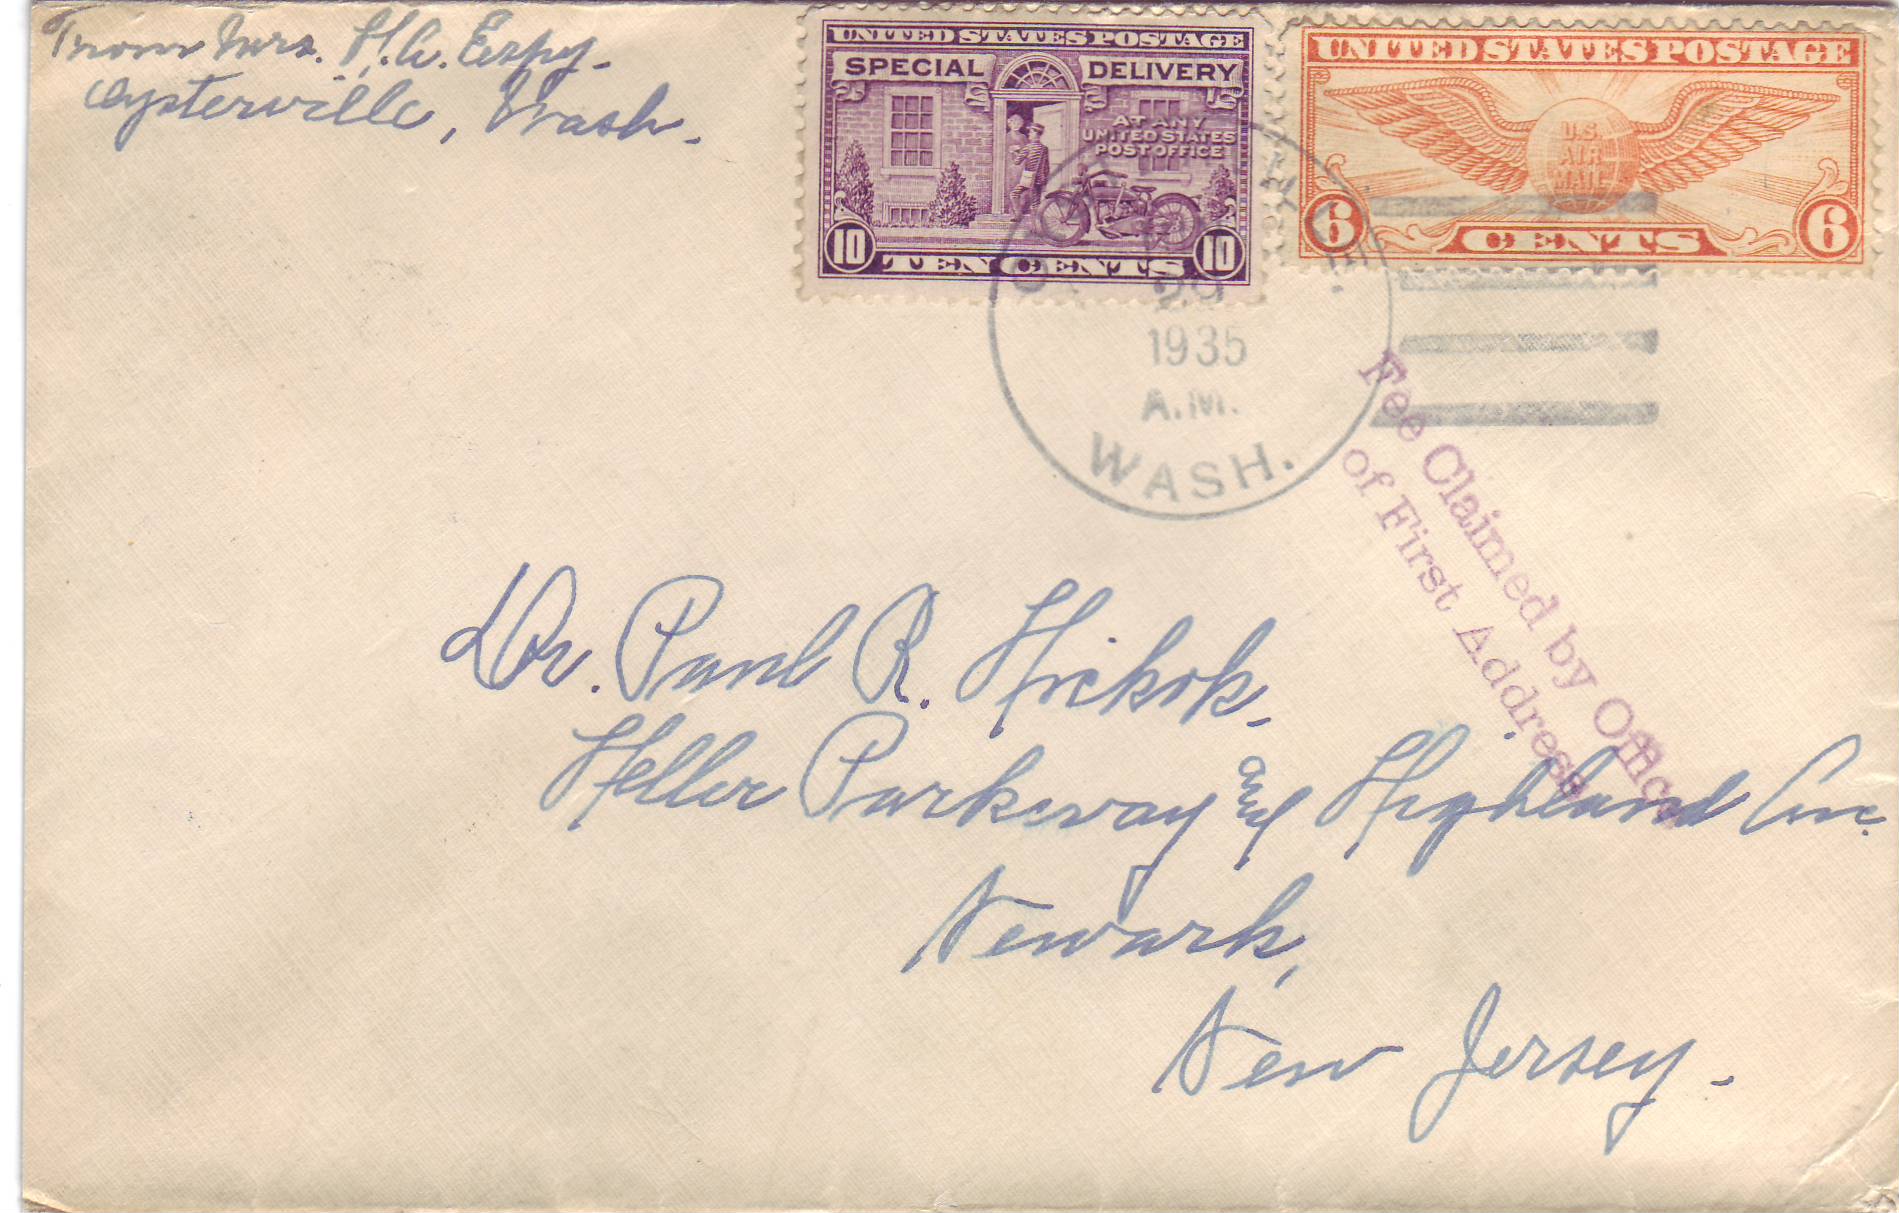 From Mrs. H. A. Espy-
Oysterville, Wash.
UNITED STATES POSTAGE
SPECIAL DELIVERY
AT ANY
UNITED STATES
POST OFFICE
10 TEN CENTS 10
UNITED STATES POSTAGE
U.S.
AIR
MAIL
6 CENTS 6
29
1935
A.M.
WASH.
Fee Claimed by Office
of First Address
Dr. Paul R. Hickok,
Heller Parkway and Highland Ave.
Newark,
New Jersey-